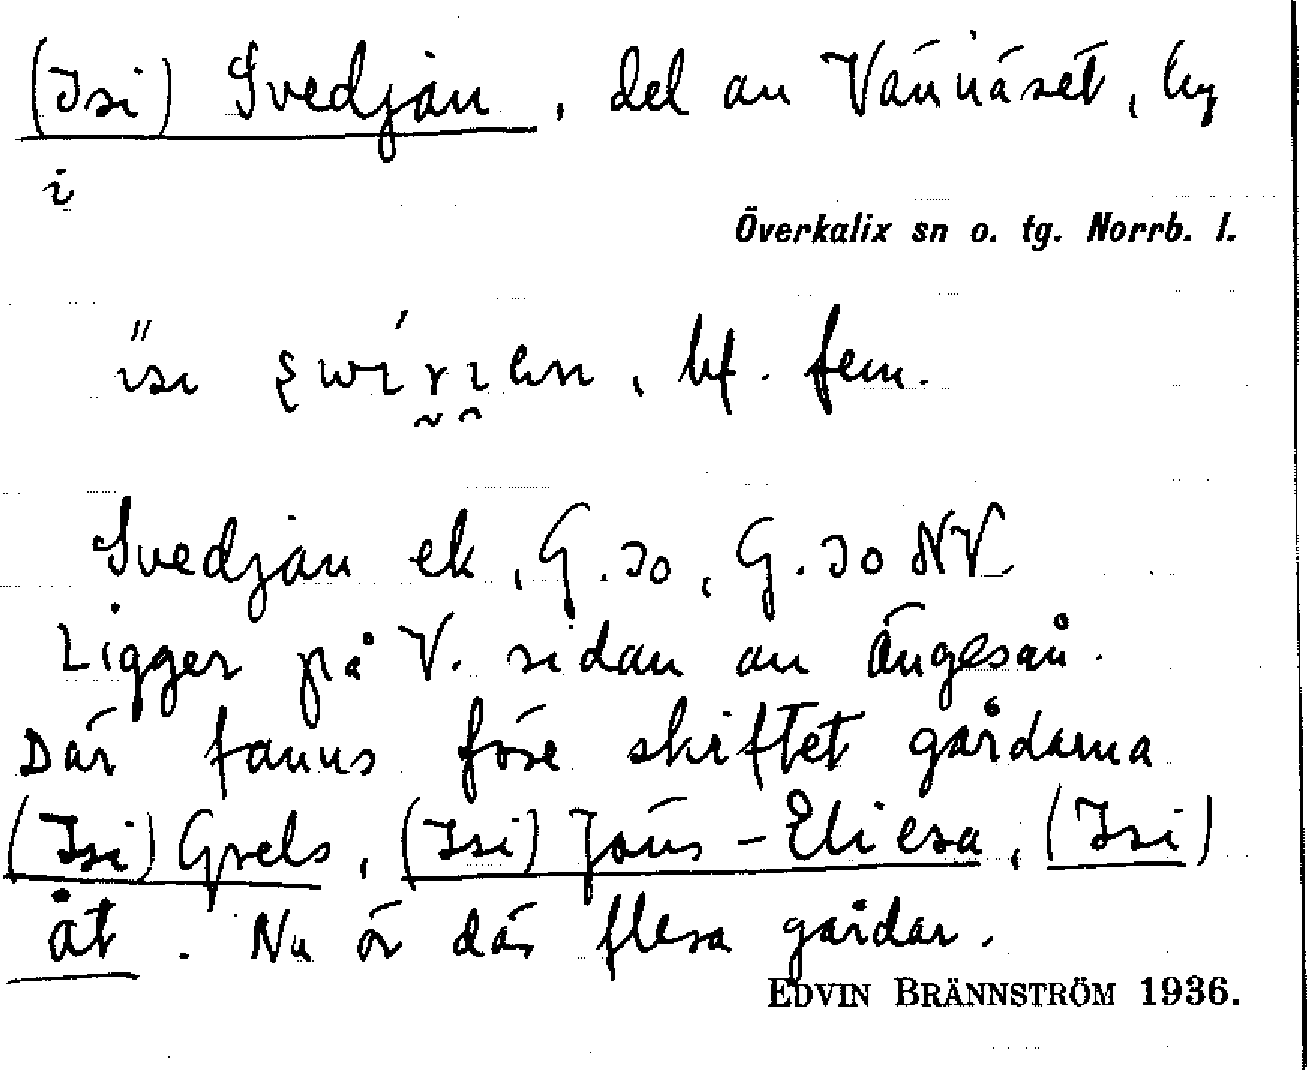 (Isi) Svedjan, del av Vännäset, by
i
Överkalix sn o. tg. Norrb. l.
bf. fem.
Svedjan ek, G. 30, G. 30 NV
Ligger på V. sidan av Ängesån.
Där fanns före skiftet gårdarna
(Isi) Grels, (Isi) Jöns-Eliesa, (Isi)
åt. Nu är där flera gårdar.
EDVIN BRÄNNSTRÖM 1936.